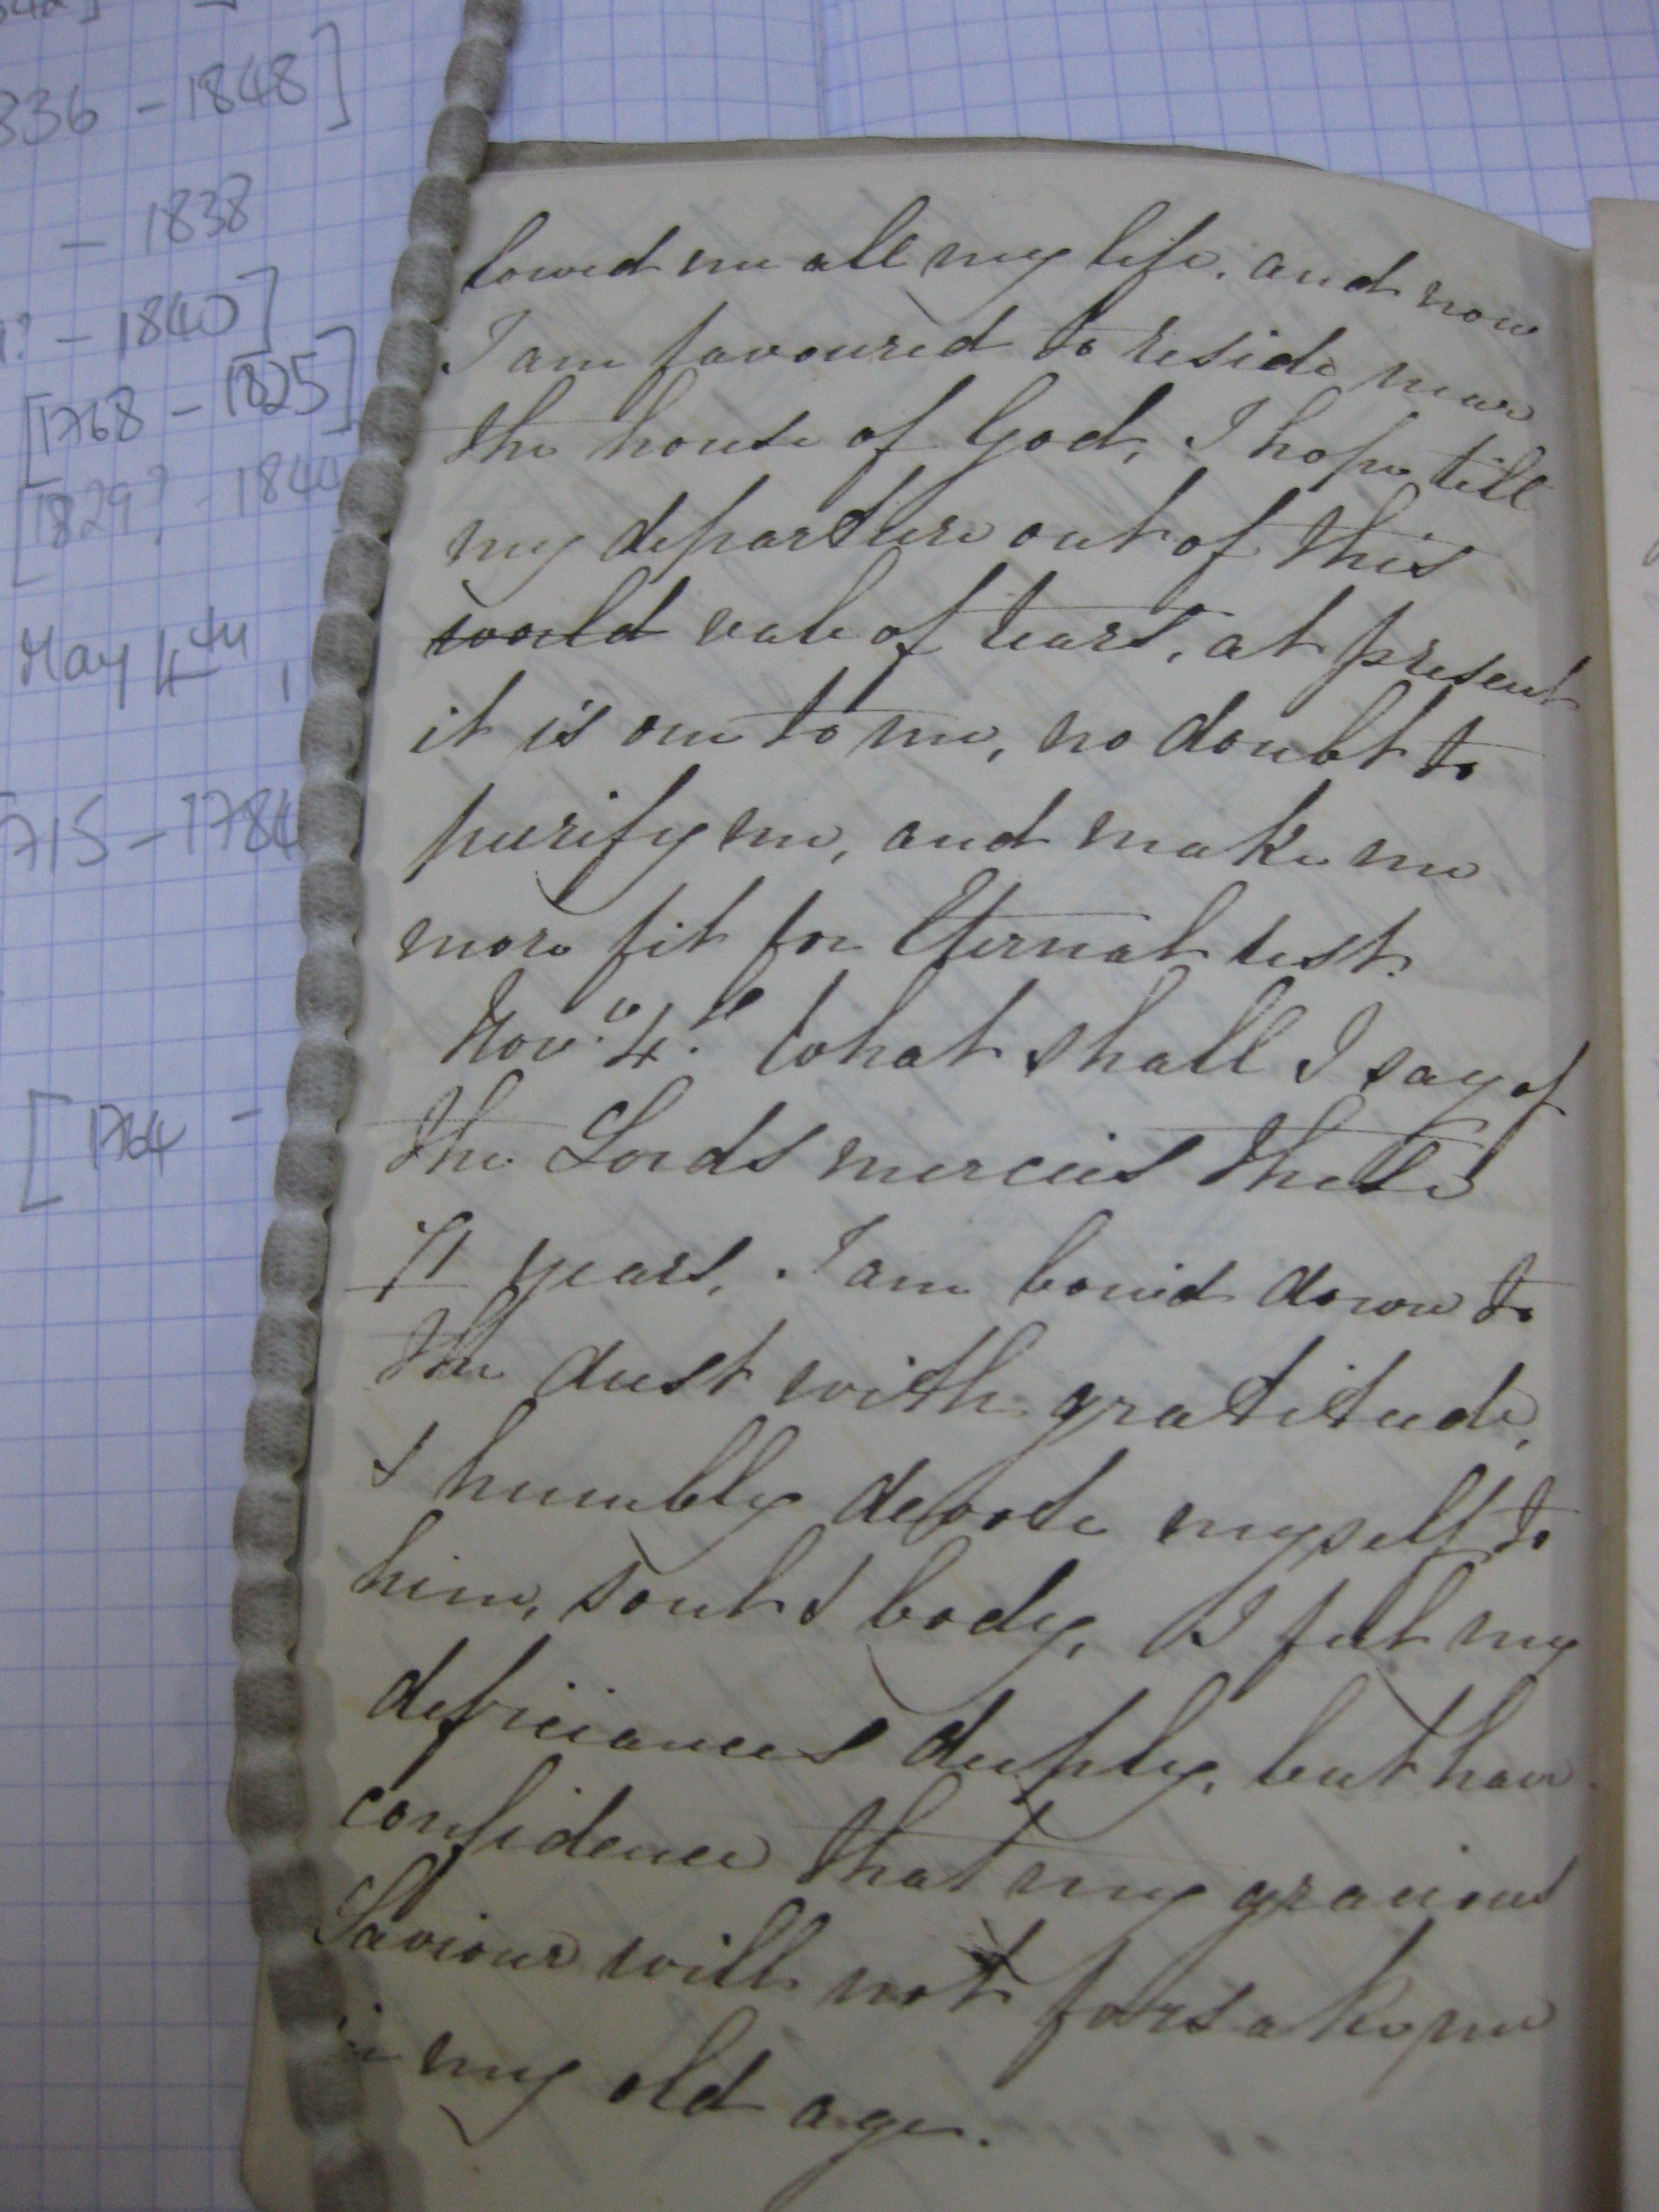 336 - 1848]
- 1838
? - 1840]
[1768 - 1825]
[1829? - 184
May 4th,
715 - 178
[1764 -
lowed me all my life. and now
I am favoured to reside near
the house of God, I hope till
my departure out of this
world vale of tears, at present
it is one to me, no doubt to
purify me, and make me
more fit for Eternal rest.
Novr. 4th What shall I say of
the Lords mercies these
71 years, I am bowed down to
the dust with gratitude,
& humbly devote myself to
him, soul & body, I feel my
deficiances deeply, but have
confidence that my gracious
Saviour will not forsake me
in my old age.